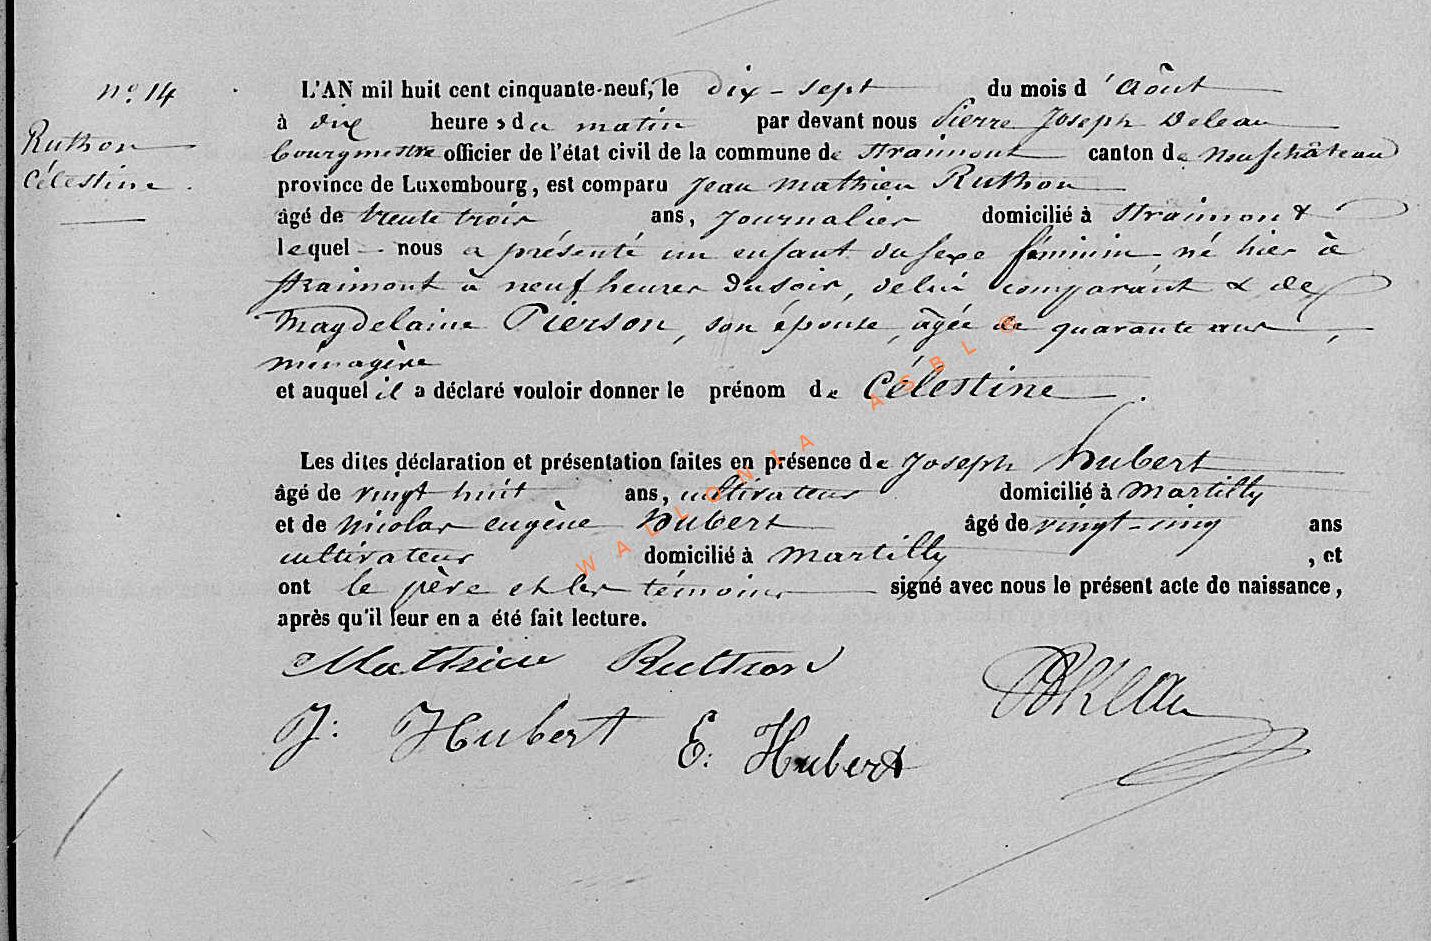 n° 14
Ruthon
Célestine.
L'AN mil huit cent cinquante-neuf, le dix-sept du mois d'Août
à dix heures du matin par devant nous Pierre Joseph Deleau
bourgmestre officier de l'état civil de la commune de Straimont canton de Neufchâteau
province de Luxembourg, est comparu Jean Mathieu Ruthon
âgé de trente trois ans, Journalier domicilié à Straimont
lequel nous a présenté un enfant du sexe féminin né hier à
Straimont à neuf heures du soir, de lui comparant & de
Magdelaine Pierson, son épouse, âgée de quarante ans,
ménagère
et auquel il a déclaré vouloir donner le prénom de Célestine.
Les dites déclaration et présentation faites en présence de Joseph hubert
âgé de vingt huit ans, cultivateur domicilié à Martilly
et de Nicolas eugène hubert âgé de vingt-cinq ans
cultivateur domicilié à Martilly, et
ont le père et les témoins signé avec nous le présent acte de naissance,
après qu'il leur en a été fait lecture.
Mathieu Ruthon
Deleau
J: Hubert E: Hubert
WALLONIA ASBL ©